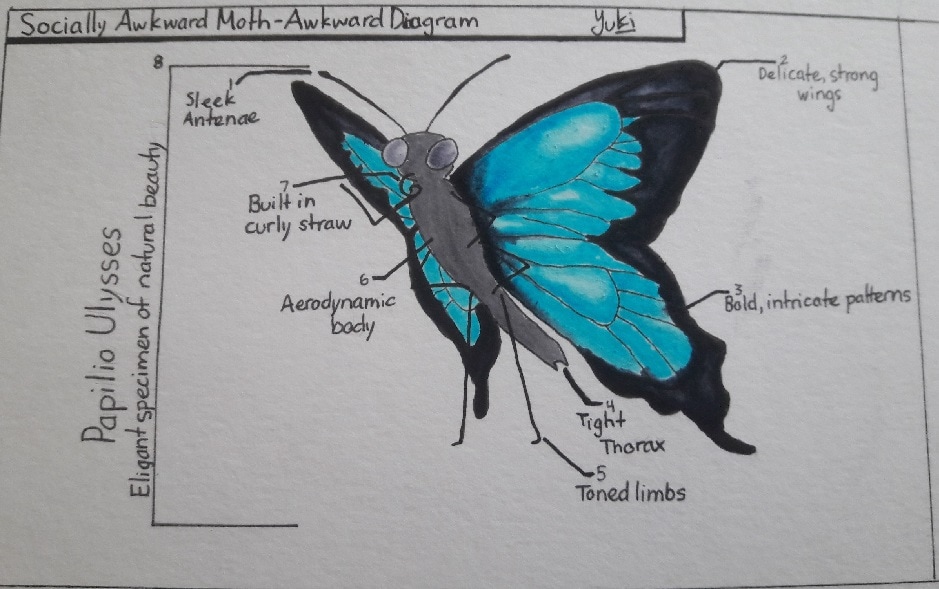 Socially Awkward Moth-Awkward Diagram
Yuki
8
1
Sleek
Antenae
2
Delicate, strong
wings
7
Built in
curly straw
6
Aerodynamic
body
3
Bold, intricate patterns
4
Tight
Thorax
5
Toned limbs
Papilio Ulysses
Eligant specimen of natural beauty